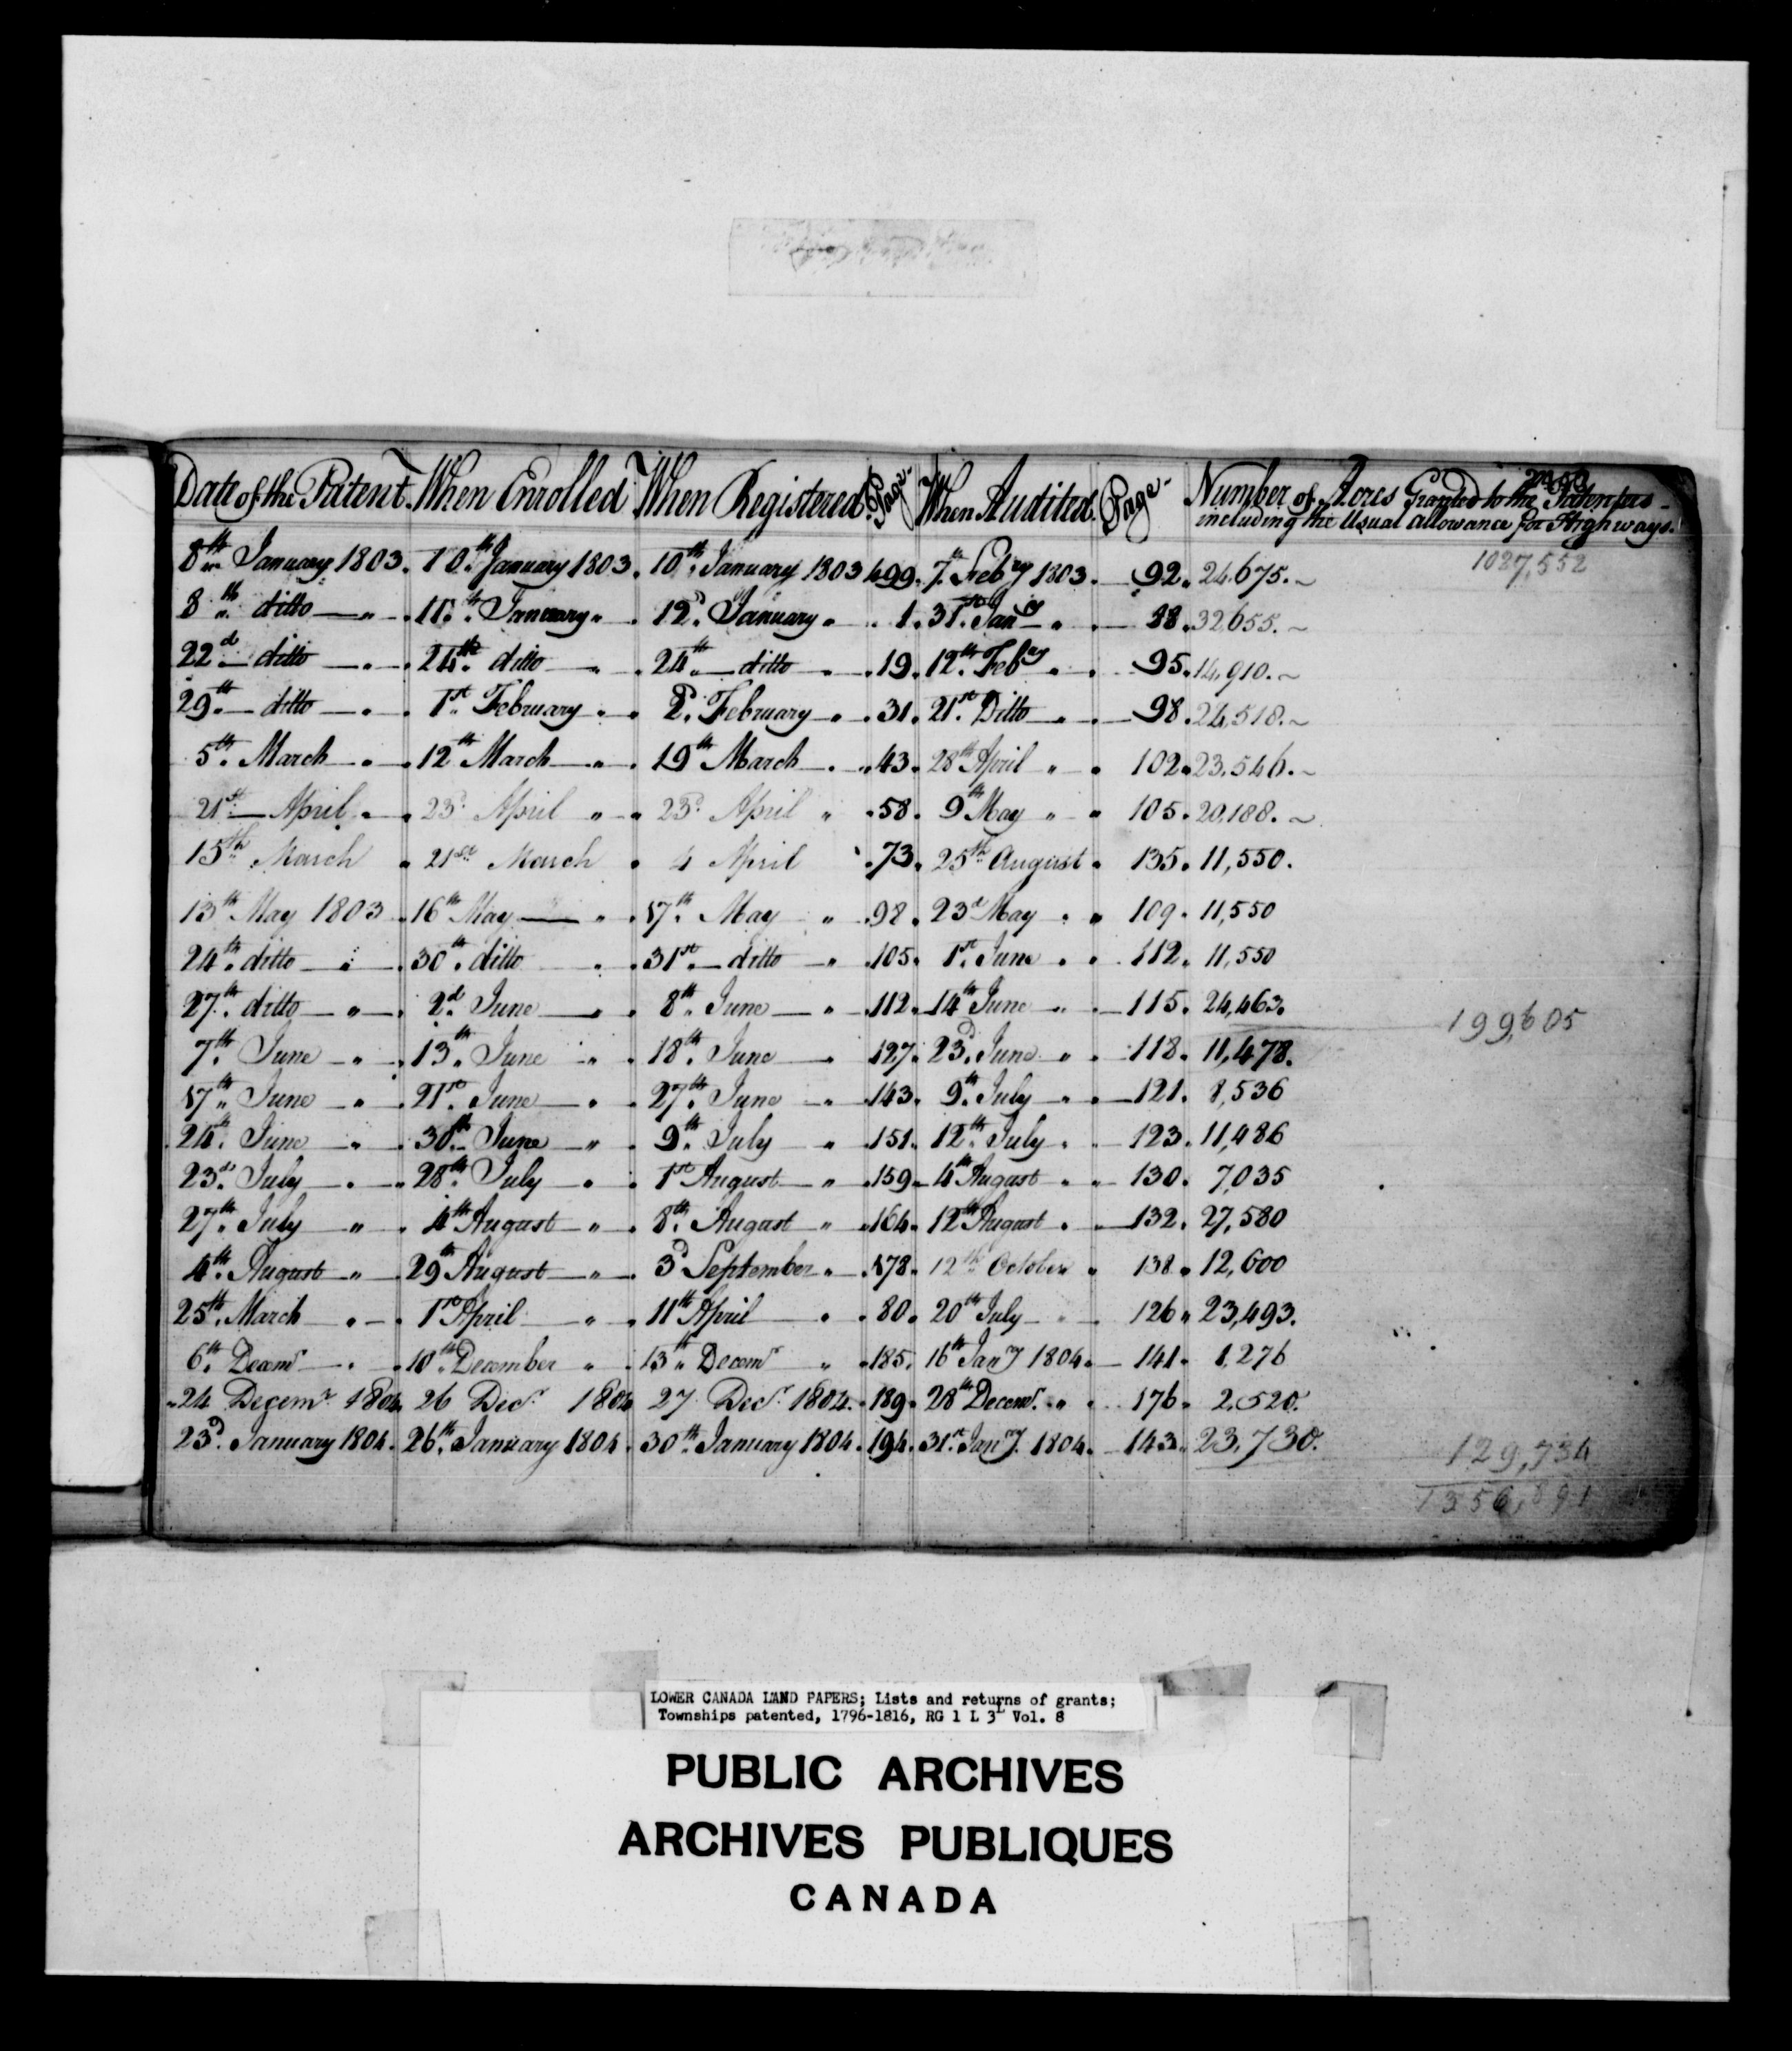 Date of the Patent. When Enrolled When Registered Page. When Audited. Page. Number of Acres Granted to the Patentees
including the Usual allowance for Highways.
1027,552
8th January 1803. 10th January 1803. 10th January 1803 499. 7th Febry 1803. 92. 24,675.
8th ditto 11th January 12d January 1. 31st Jany 88. 32,655.
22d ditto 24th ditto 24th ditto 19. 12th Feby 95. 14,910.
29th ditto 1st February 2d February 31. 21st Ditto 98. 24,518.
5th March 12th March 19th March 43. 28th April 102. 23,546.
21st April 23d April 23d April 58. 9th May 105. 20,188.
15th March 21st March 4 April 73. 25th August 135. 11,550.
13th May 1803 16th May 17th May 98. 23d May 109. 11,550
24th ditto 30th ditto 31st ditto 105. 1st June 112. 11,550
27th ditto 2d June 8th June 112. 14th June 115. 24,463.
199,605
7th June 13th June 18th June 127. 23d June 118. 11,478.
17th June 21st June 27th June 143. 9th July 121. 8,536
24th June 30th June 9th July 151. 12th July 123. 11,486
23d July 28th July 1st August 159. 4th August 130. 7,035
27th July 4th August 8th August 164. 12th August 132. 27,580
4th August 29th August 3d September 178. 12th October 138. 12,600
25th March 1st April 11th April 80. 20th July 126. 23,493.
6th Decemr 10th December 13th Decemr 185. 16th Jany 1804. 141. 1,276
24 Decemr 1804 26 Decr 1804 27 Decr 1804. 189. 28th Decemr. 176. 2,520.
23d January 1804. 26th January 1804. 30th January 1804. 194. 31st Jany 1804. 143. 23,730.
129,734
1356,891
LOWER CANADA LAND PAPERS; Lists and returns of grants;
Townships patented, 1796-1816, RG 1 L 3L Vol. 8
PUBLIC ARCHIVES
ARCHIVES PUBLIQUES
CANADA